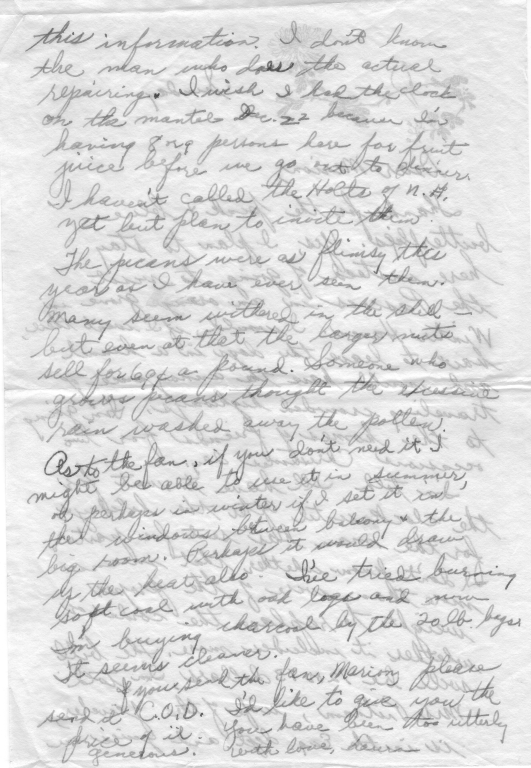 this information. I don't know
the man who does the actual
repairing. I wish I had the clock
on the mantel Dec. 22 because I'm
having 8 or 9 persons here for fruit
juice before we go out to dinner.
I haven't called the Holts of N.H.
yet but plan to invite them
The pecans were as flimsy this
year as I have ever seen them.
Many seem withered in the shell -
but even at that the larger nuts
sell for 60¢ a pound. Someone who
grows pecans thought the excessive
rain washed away the pollen.
As to the fan, if you don't need it I
might be able to use it in summer,
or perhaps in winter if I set it in
the windows between balcony & the
big room. Perhaps it would draw
up the heat also. I've tried burning
soft coal with oak logs and now
I'm buying charcoal by the 20 lb. bags
It seems cleaner.
If you send the fan, Marion, please
send it C.O.D. I'd like to give you the
price of it. You have been too utterly
generous. With love, Laura